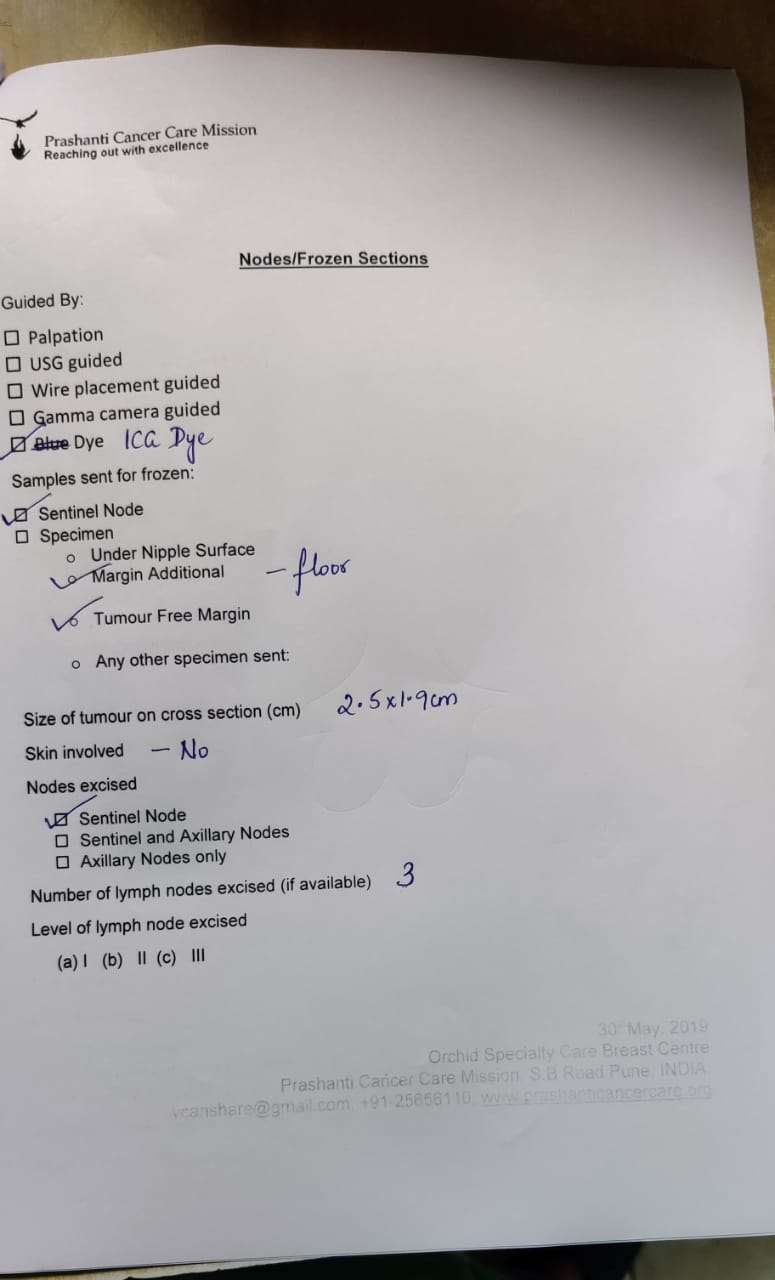 Prashanti Cancer Care Mission
Reaching out with excellence
Nodes/Frozen Sections
Guided By:
☐ Palpation
☐ USG guided
☐ Wire placement guided
☐ Gamma camera guided
☑ Blue Dye ICG Dye
Samples sent for frozen:
☑ Sentinel Node
☐ Specimen
o Under Nipple Surface
o Margin Additional - floor
o Tumour Free Margin
o Any other specimen sent:
Size of tumour on cross section (cm) 2.5x1.9cm
Skin involved - No
Nodes excised
☑ Sentinel Node
☐ Sentinel and Axillary Nodes
☐ Axillary Nodes only
Number of lymph nodes excised (if available) 3
Level of lymph node excised
(a) I (b) II (c) III
30th May, 2019
Orchid Specialty Care Breast Centre
Prashanti Cancer Care Mission. S.B Road Pune, INDIA.
vcanshare@gmail.com, +91-25656110, www.prashanticancercare.org